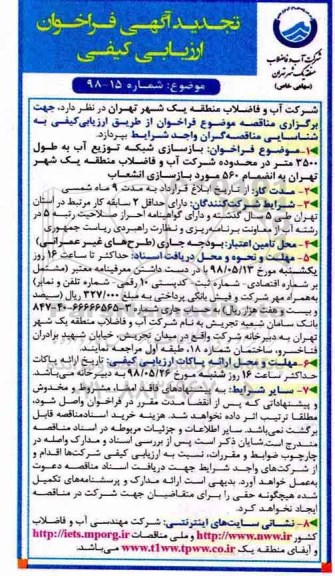 تجدید آگهی فراخوان
ارزیابی کیفی
شرکت آب و فاضلاب
منطقه یک شهر تهران
(سهامی خاص)
موضوع: شماره ۱۵-۹۸
شرکت آب و فاضلاب منطقه یک شهر تهران در نظر دارد، جهت
برگزاری مناقصه موضوع فراخوان از طریق ارزیابی‌کیفی به
شناسایی مناقصه‌گران واجد شرایط بپردازد.
۱- موضوع فراخوان: بازسازی شبکه توزیع آب به طول
۳۵۰۰ متر در محدوده شرکت آب و فاضلاب منطقه یک شهر
تهران به انضمام ۵۶۰ مورد بازسازی انشعاب
۲- مدت کار: از تاریخ ابلاغ قرارداد به مدت ۹ ماه شمسی
۳- شرایط شرکت‌کنندگان: دارای حداقل ۲ سابقه کار مرتبط در استان
تهران طی ۵ سال گذشته و دارای گواهینامه احراز صلاحیت رتبه ۵ در
رشته آب از معاونت برنامه‌ریزی و نظارت راهبردی ریاست جمهوری
۴- محل تامین اعتبار: بودجه جاری (طرح‌های غیر عمرانی)
۵- مهلت و نحوه و محل دریافت اسناد: حداکثر تا ساعت ۱۶ روز
یکشنبه مورخ ۹۸/۰۵/۱۳ در دست داشتن معرفینامه معتبر (مشتمل
بر شماره اقتصادی- شماره ثبت- کدپستی ۱۰ رقمی- شماره تلفن و نمابر)
به‌همراه مهر شرکت و فیش بانکی پرداختی به مبلغ ۳۲۷/۰۰۰ ریال (سیصد
و بیست و هفت هزار ریال) به حساب جاری شماره ۳-۶۶۶۶۶۵۶۳-۴۰-۸۴۷
بانک سامان شعبه تجریش به نام شرکت آب و فاضلاب منطقه یک شهر
تهران به دبیرخانه شرکت واقع در میدان تجریش، خیابان شهید برادران
فناخسرو، ساختمان شماره ۱۸، طبقه اول مراجعه نمایند.
۶- مهلت و محل ارائه پاکات ارزیابی کیفی: تاریخ ارائه پاکات
حداکثر ساعت ۱۶ روز شنبه مورخ ۹۸/۰۵/۲۶ به دبیرخانه می‌باشد.
۷- سایر شرایط: به پیشنهادهای فاقد امضا، مشروط و مخدوش
و پیشنهاداتی که پس از انقضا مدت مقرر در فراخوان واصل شود،
مطلقا ترتیب اثر داده نخواهد شد. هزینه خرید اسنادمناقصه قابل
برگشت نمی‌باشد. سایر اطلاعات و جزئیات مربوطه در اسناد مناقصه
مندرج است.شایان ذکر است پس از بررسی اسناد و مدارک واصله در
چارچوب ضوابط و مقررات، نسبت به ارزیابی کیفی شرکت‌ها اقدام و
از شرکت‌های واجد شرایط جهت دریافت اسناد مناقصه دعوت
به‌عمل خواهد آورد. بدیهی است ارائه مدارک و پرسشنامه‌های تکمیل
شده هیچگونه حقی را برای متقاضیان جهت شرکت در مناقصه
ایجاد نخواهد کرد.
۸- نشانی سایت‌های اینترنتی: شرکت مهندسی آب و فاضلاب
کشور http://www.nww.ir و ملی مناقصات http://iets.mporg.ir
و آبفای منطقه یک www.t1ww.tpww.co.ir می‌باشد.